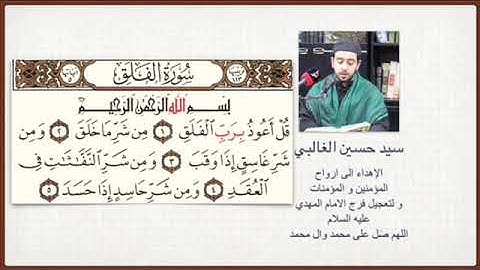 سُورَةُ الفَلَقِ
بِسْمِ اللَّهِ الرَّحْمَٰنِ الرَّحِيمِ
قُلْ أَعُوذُ بِرَبِّ الْفَلَقِ ١ مِن شَرِّ مَا خَلَقَ ٢ وَمِن
شَرِّ غَاسِقٍ إِذَا وَقَبَ ٣ وَمِن شَرِّ النَّفَّٰثَٰتِ فِي
الْعُقَدِ ٤ وَمِن شَرِّ حَاسِدٍ إِذَا حَسَدَ ٥
سيد حسين الغالبي
الإهداء الى ارواح
المؤمنين و المؤمنات
و لتعجيل فرج الامام المهدي
عليه السلام
اللهم صل على محمد وال محمد